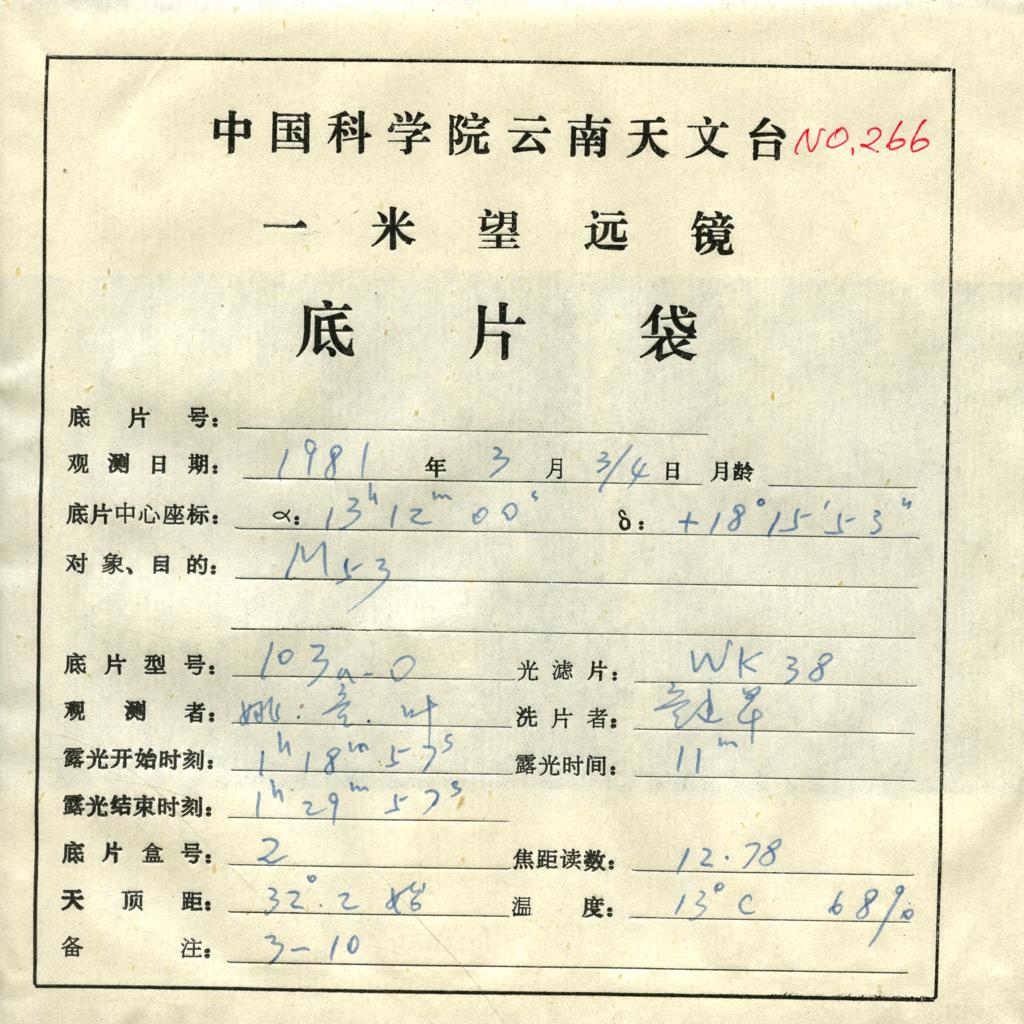 中国科学院云南天文台 NO.266
一米望远镜
底片袋
底片号:
观测日期: 1981 年 3 月 3/4 日 月龄
底片中心座标: α: 13h 12m 00s δ: +18° 15′ 53″
对象、目的: M53
底片型号: 103a-O 光滤片: WK 38
观测者: 姚. 叶 洗片者:
露光开始时刻: 1h 18m 57s 露光时间: 11m
露光结束时刻: 1h 29m 57s
底片盒号: 2 焦距读数: 12.78
天顶距: 32°.2 始 温度: 13°C 68%
备注: 3-10